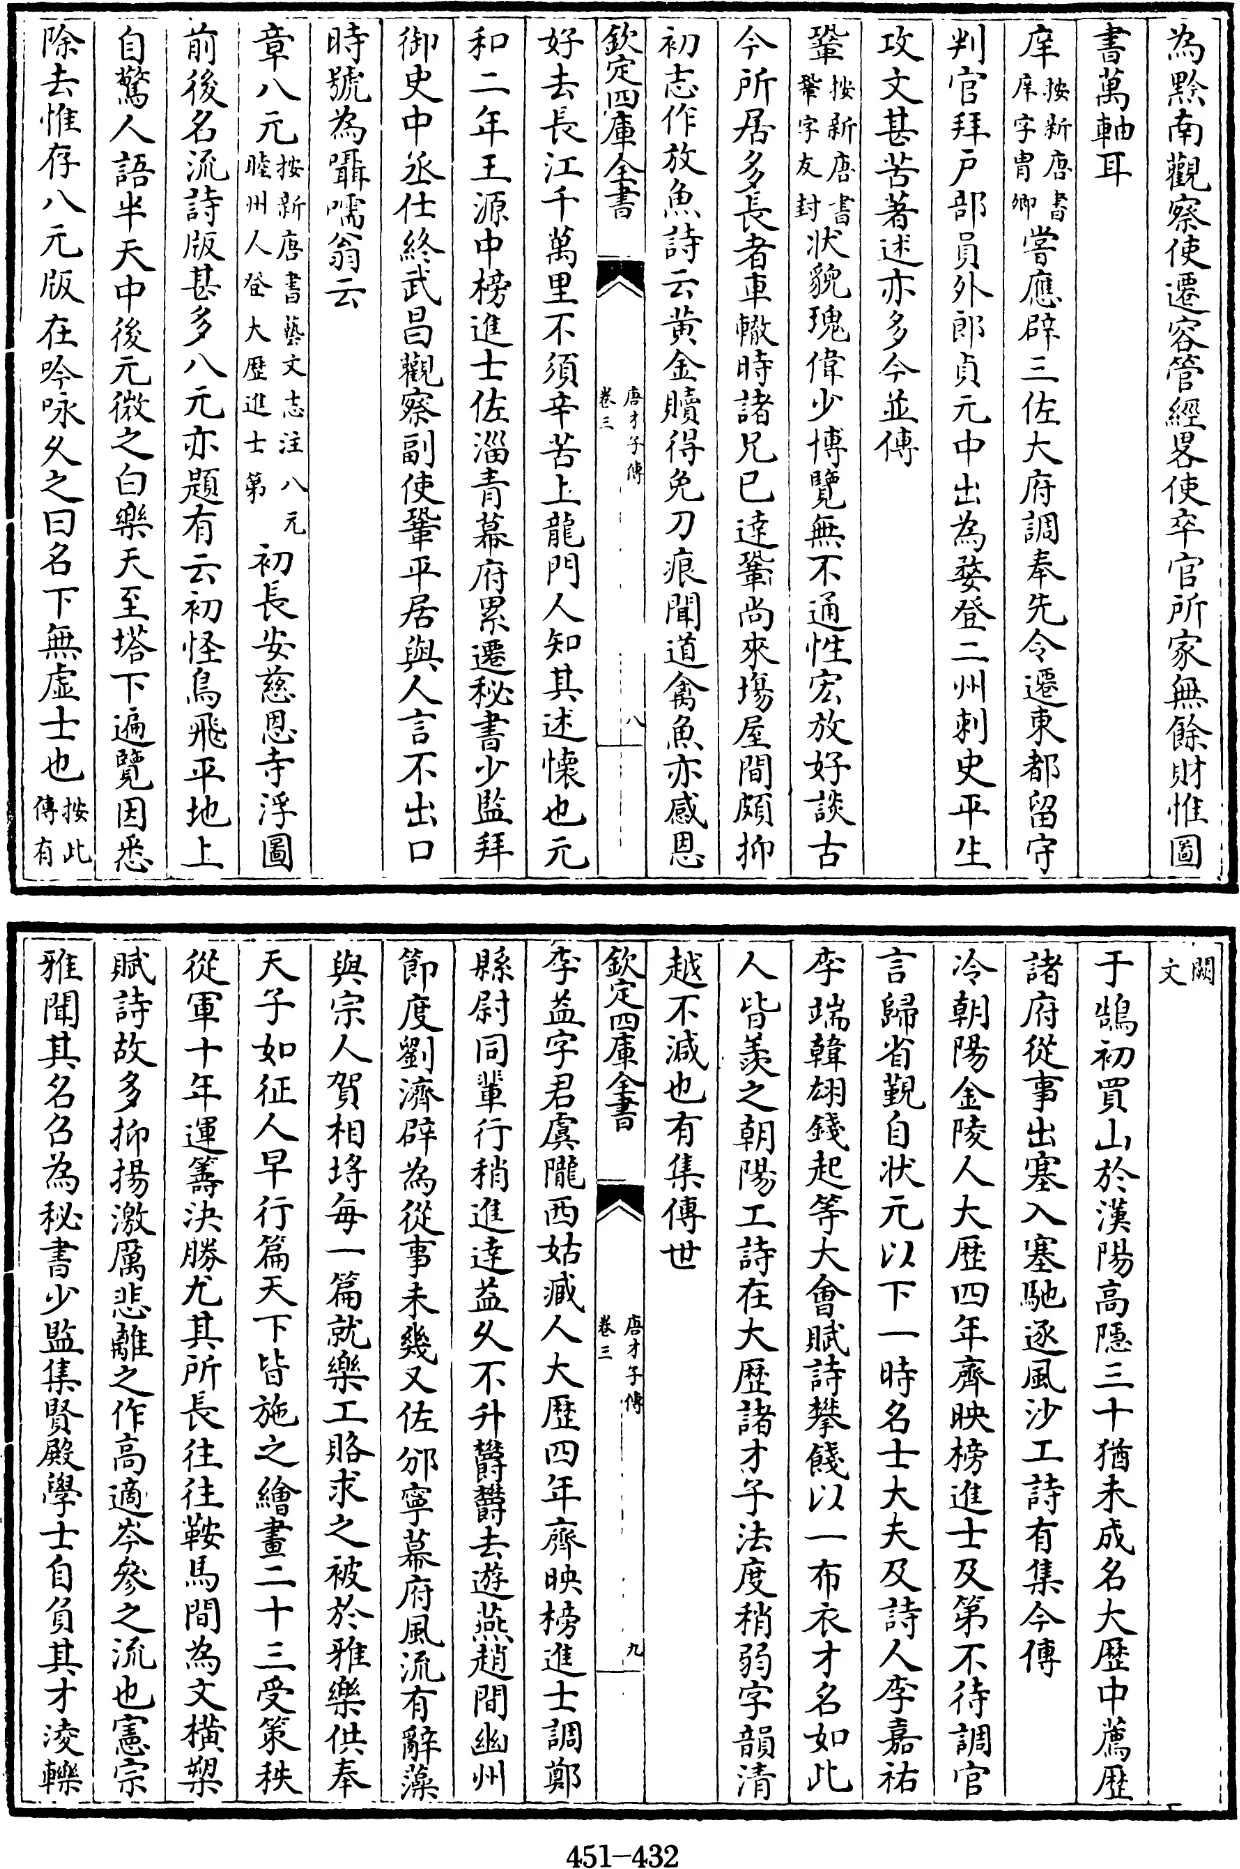 為黔南觀察使遷容管經畧使卒官所家無餘財惟圖
書萬軸耳
庠按新唐書庠字胄卿嘗應辟三佐大府調奉先令遷東都留守
判官拜戶部員外郎貞元中出為婺登二州刺史平生
攻文甚苦著述亦多今並傳
鞏按新唐書鞏字友封狀貌瑰偉少博覽無不通性宏放好談古
今所居多長者車轍時諸兄已達鞏尚來塲屋間頗抑
初志作放魚詩云黄金贖得免刀痕聞道禽魚亦感恩
欽定四庫全書 唐才子傳 卷三 八
好去長江千萬里不須辛苦上龍門人知其述懷也元
和二年王源中榜進士佐淄青幕府累遷秘書少監拜
御史中丞仕終武昌觀察副使鞏平居與人言不出口
時號為囁嚅翁云
章八元按新唐書藝文志注八元睦州人登大歷進士第初長安慈恩寺浮圖
前後名流詩版甚多八元亦題有云初怪鳥飛平地上
自驚人語半天中後元微之白樂天至塔下遍覽因悉
除去惟存八元版在吟咏久之曰名下無虛士也按此傳有
闕文
于鵠初買山於漢陽高隱三十猶未成名大歷中薦歷
諸府從事出塞入塞馳逐風沙工詩有集今傳
冷朝陽金陵人大歷四年齊映榜進士及第不待調官
言歸省覲自状元以下一時名士大夫及詩人李嘉祐
李端韓翃錢起等大會賦詩攀餞以一布衣才名如此
人皆羨之朝陽工詩在大歷諸才子法度稍弱字韻清
越不減也有集傳世
欽定四庫全書 唐才子傳 卷三 九
李益字君虞隴西姑臧人大歷四年齊映榜進士調鄭
縣尉同輩行稍進達益久不升鬱鬱去遊燕趙間幽州
節度劉濟辟為從事未幾又佐邠寧幕府風流有辭藻
與宗人賀相埒每一篇就樂工賂求之被於雅樂供奉
天子如征人早行篇天下皆施之繪畫二十三受策秩
從軍十年運籌決勝尤其所長往往鞍馬間為文橫槊
賦詩故多抑揚激厲悲離之作高適岑參之流也憲宗
雅聞其名召為秘書少監集賢殿學士自負其才淩轢
451-432